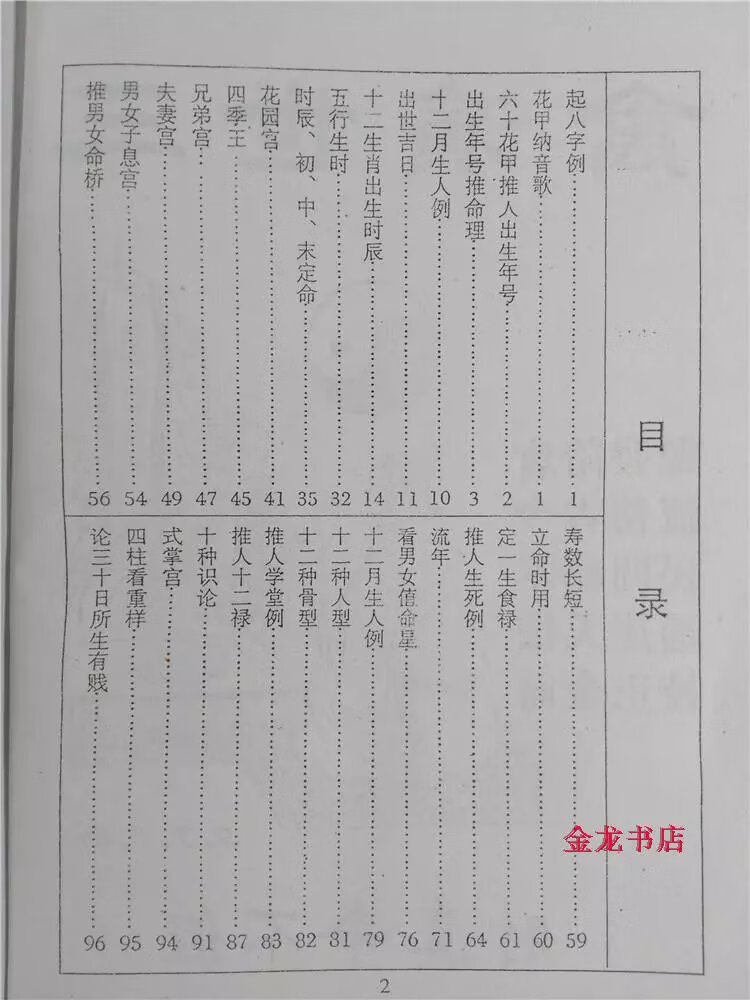 目录
起八字例 1
花甲纳音歌 1
六十花甲推人出生年号 2
出生年号推命理 3
十二月生人例 10
出世吉日 11
十二生肖出生时辰 14
五行生时 32
时辰、初、中、末定命 35
花园宫 41
四季王 45
兄弟宫 47
夫妻宫 49
男女子息宫 54
推男女命桥 56
寿数长短 59
立命时用 60
定一生食禄 61
推人生死例 64
流年 71
看男女值命星 76
十二月生人例 79
十二种人型 81
十二种骨型 82
推人学堂例 83
推人十二禄 87
十种识论 91
式掌宫 94
四柱看重样 95
论三十日所生有贱 96
金龙书店
2